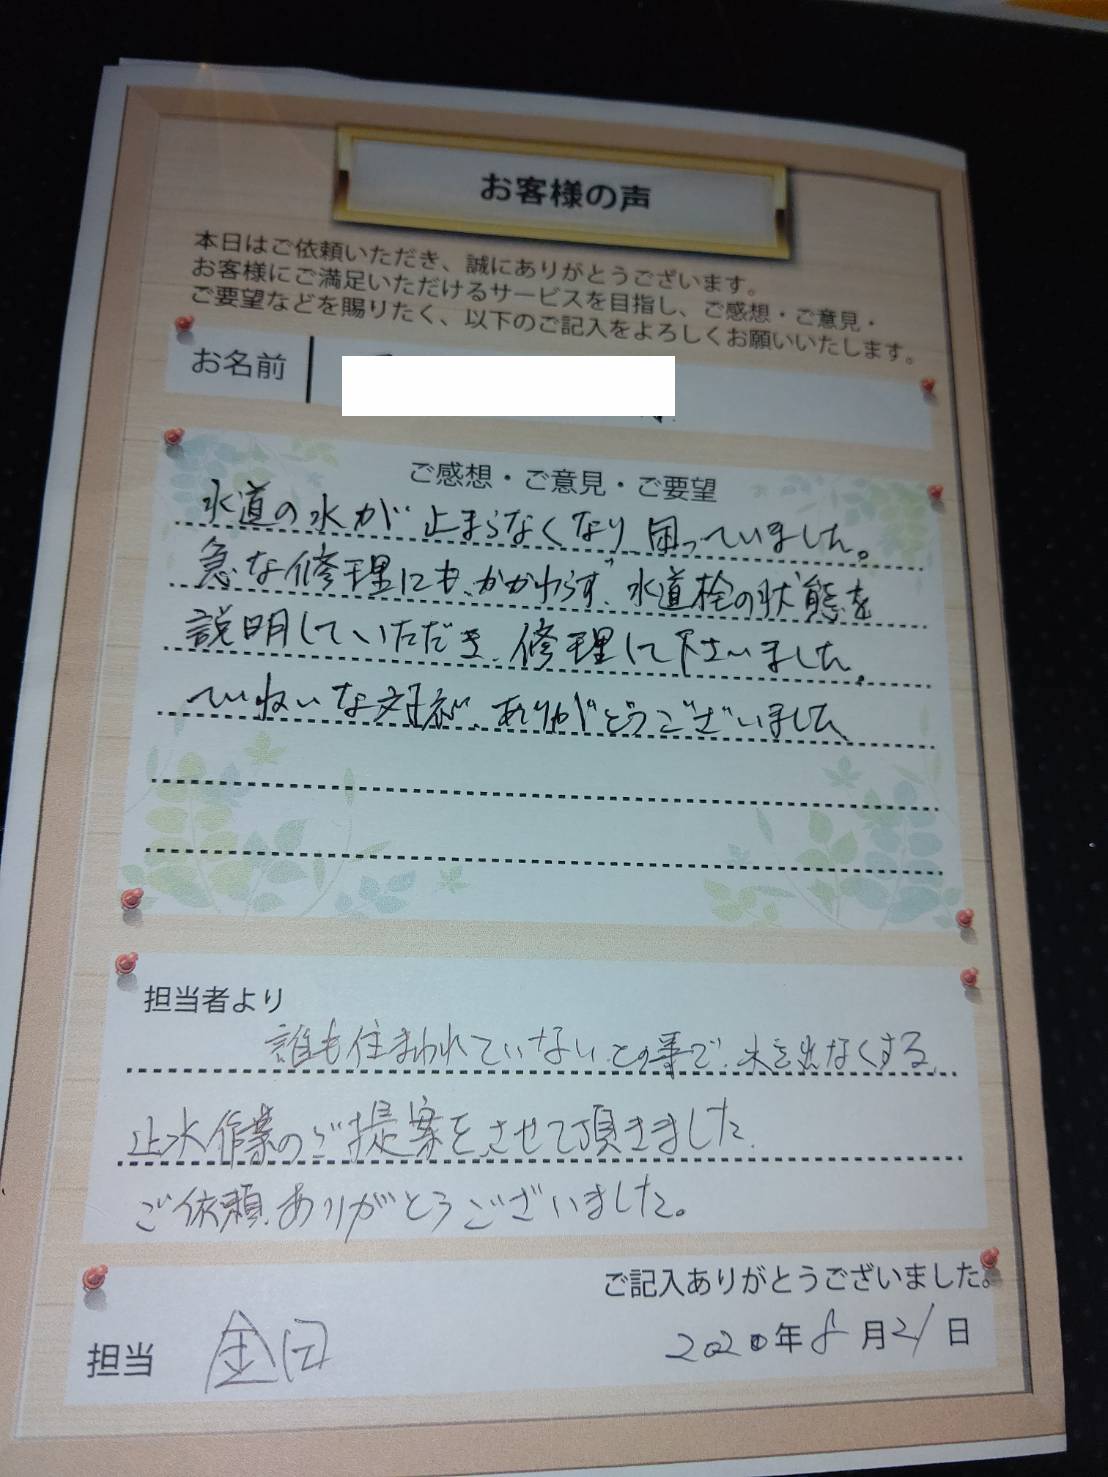 お客様の声
本日はご依頼いただき、誠にありがとうございます。
お客様にご満足いただけるサービスを目指し、ご感想・ご意見・
ご要望などを賜りたく、以下のご記入をよろしくお願いいたします。
お名前
ご感想・ご意見・ご要望
水道の水が止まらなくなり困っていました。
急な修理にも、かかわらず、水道栓の状態を
説明していただき、修理して下さいました。
ていねいな対応、ありがとうございました
担当者より
誰も住まわれていない、との事で、水を出なくする
止水作業のご提案をさせて頂きました。
ご依頼、ありがとうございました。
ご記入ありがとうございました。
担当
2020年8月21日